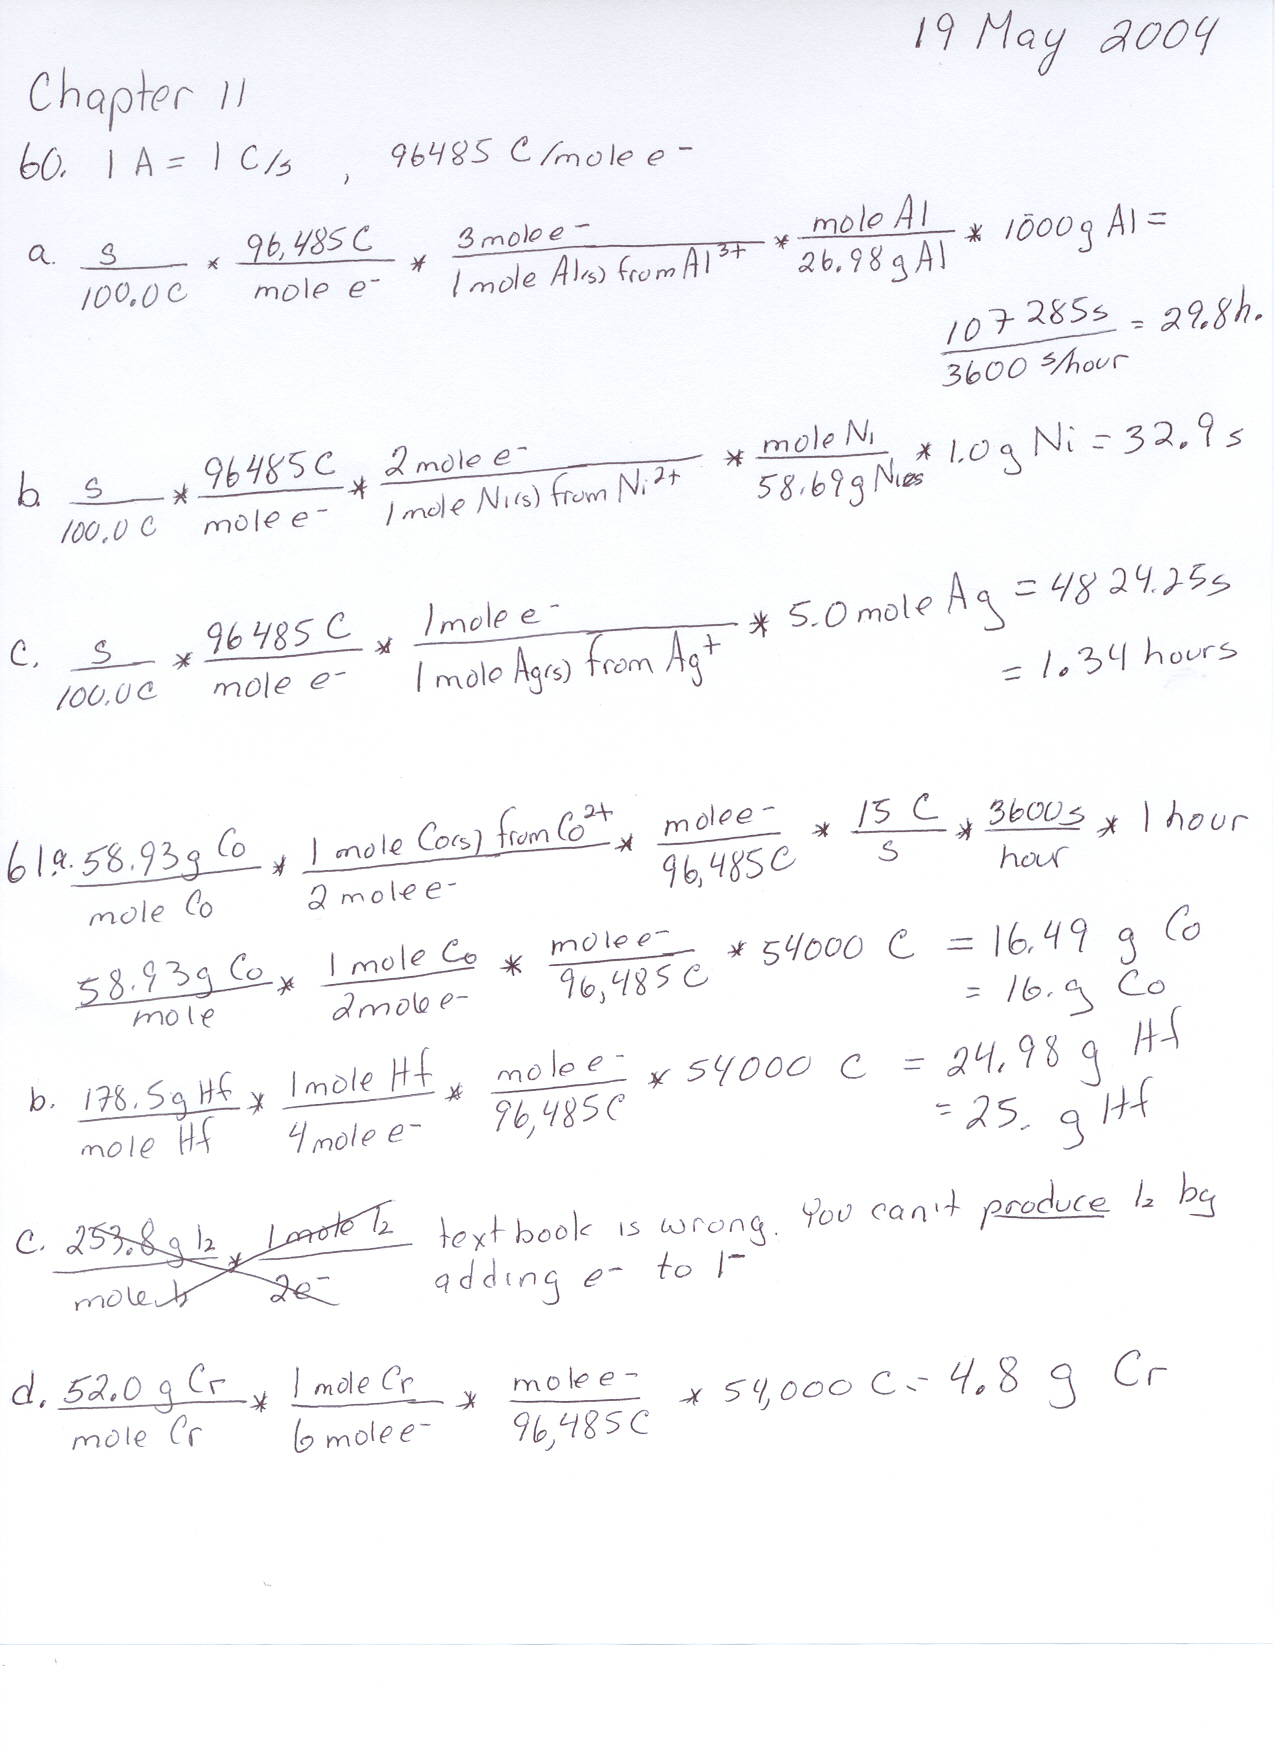 19 May 2004
Chapter 11
60. 1 A = 1 C/s , 96485 C/mole e-
a. s/100.0 C * 96,485 C/mole e- * 3 mole e-/1 mole Al(s) from Al3+ * mole Al/26.98 g Al * 1000 g Al =
107285s/3600 s/hour = 29.8h.
b. s/100.0 C * 96485 C/mole e- * 2 mole e-/1 mole Ni(s) from Ni2+ * mole Ni/58.69 g Ni * 1.0 g Ni = 32.9 s
c. s/100.0 C * 96485 C/mole e- * 1 mole e-/1 mole Ag(s) from Ag+ * 5.0 mole Ag = 4824.25s
= 1.34 hours
61. a. 58.93 g Co/mole Co * 1 mole Co(s) from Co2+/2 mole e- * mole e-/96,485 C * 15 C/s * 3600s/hour * 1 hour
58.93 g Co/mole * 1 mole Co/2 mole e- * mole e-/96,485 C * 54000 C = 16.49 g Co
= 16. g Co
b. 178.5 g Hf/mole Hf * 1 mole Hf/4 mole e- * mole e-/96,485 C * 54000 C = 24.98 g Hf
= 25. g Hf
c. 253.8 g I2/mole I2 * 1 mole I2/2e- textbook is wrong. You can't produce I2 by
adding e- to I-
d. 52.0 g Cr/mole Cr * 1 mole Cr/6 mole e- * mole e-/96,485 C * 54,000 C = 4.8 g Cr